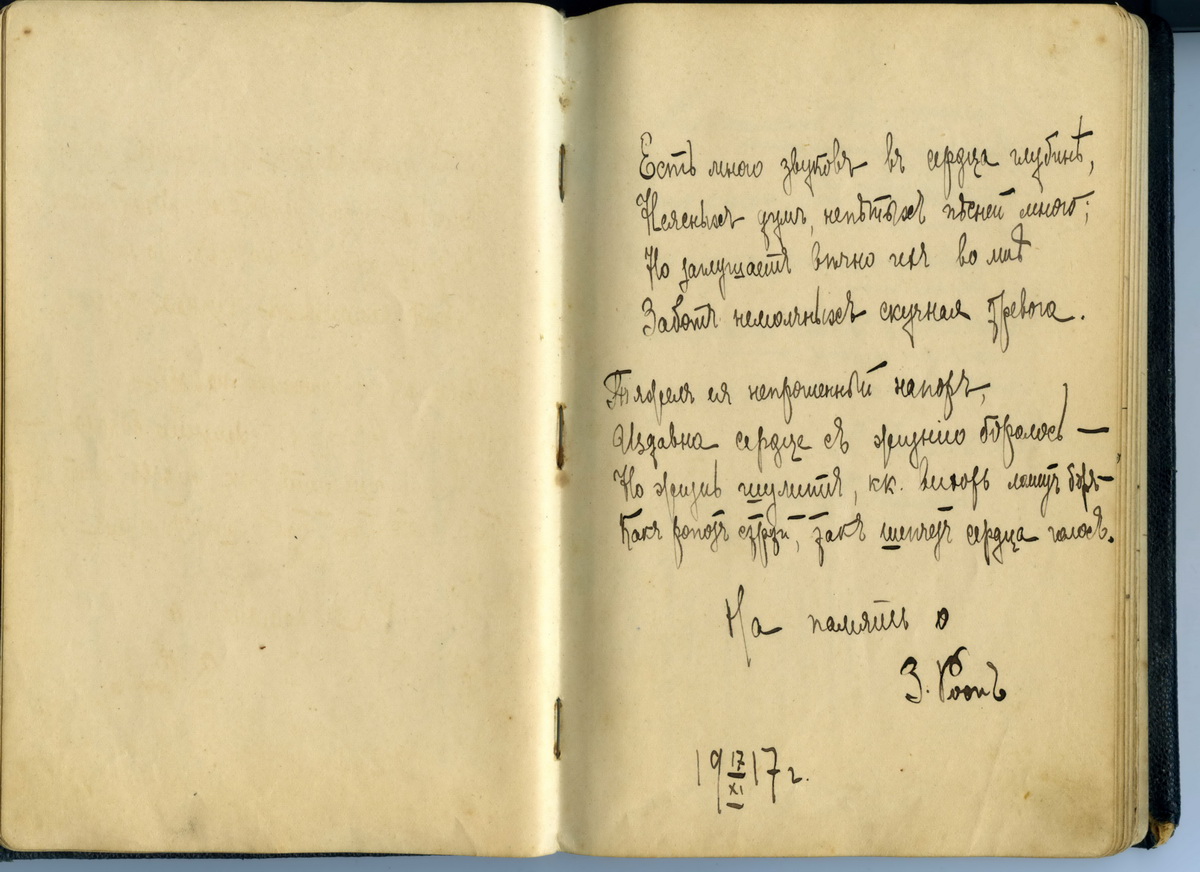 Есть много звуковъ въ сердца глубинѣ,
Неясныхъ думъ, непѣтыхъ пѣсней много;
Но заглушаетъ вѣчно ихъ во мнѣ
Заботъ немолчныхъ скучная тревога.
Тяжелъ ея непрошенный напоръ,
Издавна сердце съ жизнію боролось —
Но жизнь шумитъ, кк. вихорь ломитъ боръ —
Какъ ропотъ струй, такъ шепчетъ сердца голосъ.
На память о
З. Роопъ
19 17/XI 17 г.